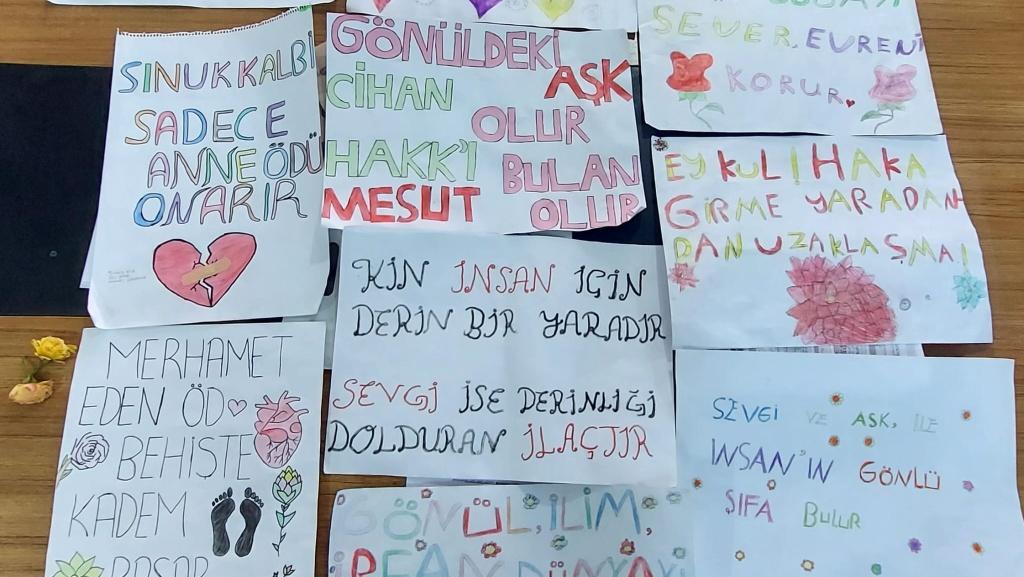 SEVER, EVRENİ
KORUR.
SINUK KALBİ
SADECE
ANNE ÖDÜ
ONARIR
GÖNÜLDEKİ
CİHAN AŞK
OLUR
HAKK'I BULAN
MESUT OLUR
EY KUL! HAKA
GİRME YARADAN
DAN UZAKLAŞMA!
KİN İNSAN İÇİN
DERİN BİR YARADIR
SEVGİ İSE DERİNLİĞİ
DOLDURAN İLAÇTIR
MERHAMET
EDEN ÖD
BEHİŞTE
KADEM
BASAR
SEVGİ VE AŞK, İLE
İNSAN'IN GÖNLÜ
ŞİFA BULUR
GÖNÜL, İLİM,
İRFAN DÜNYAYI